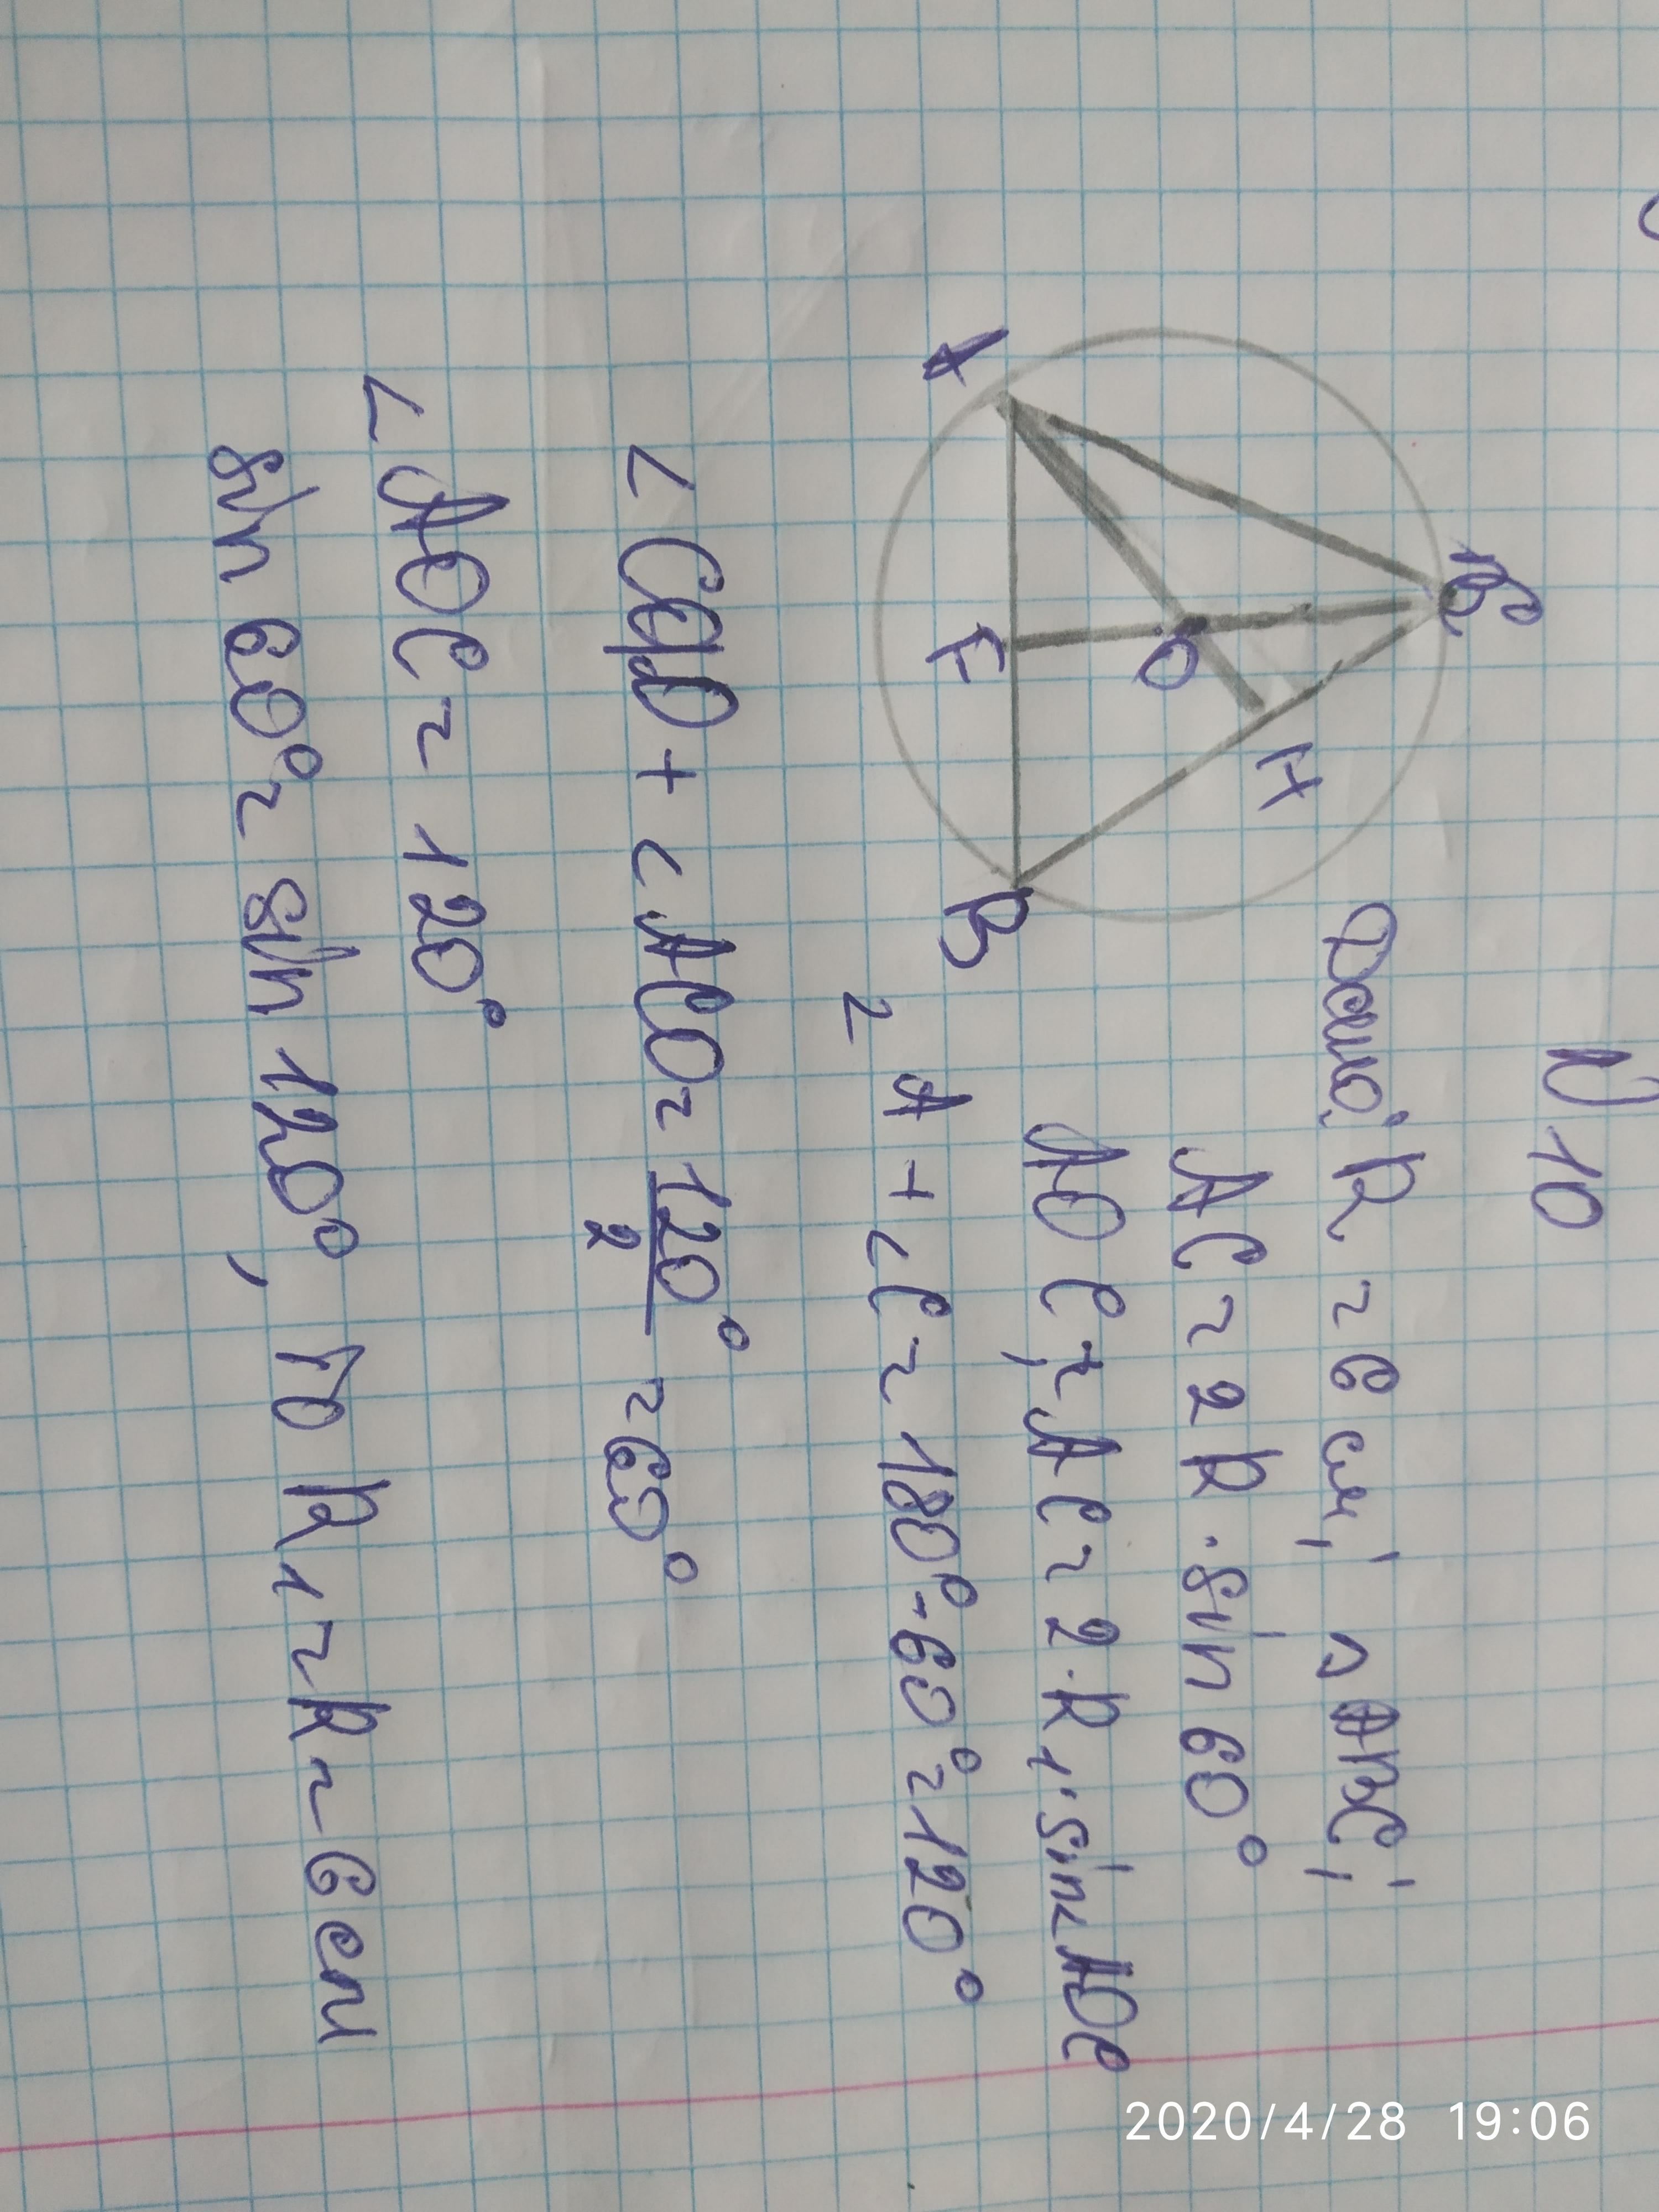 N 10
Дано: R = 6 см; △ ABC;
AC = 2R · sin 60°
AOC; AC = 2 · R1 · sin∠AOC
∠A + ∠C = 180° - 60° = 120°
∠CAO + ∠ACO = 120°/2 = 60°
∠AOC = 120°
sin 60° = sin 120°, то R1 = R = 6см
C
A
B
O
F
H
2020/4/28 19:06